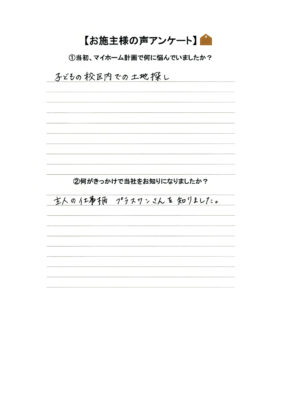 【お施主様の声アンケート】
①当初、マイホーム計画で何に悩んでいましたか？
子どもの校区内での土地探し
②何がきっかけで当社をお知りになりましたか？
主人の仕事柄 プラスワンさんを知りました。